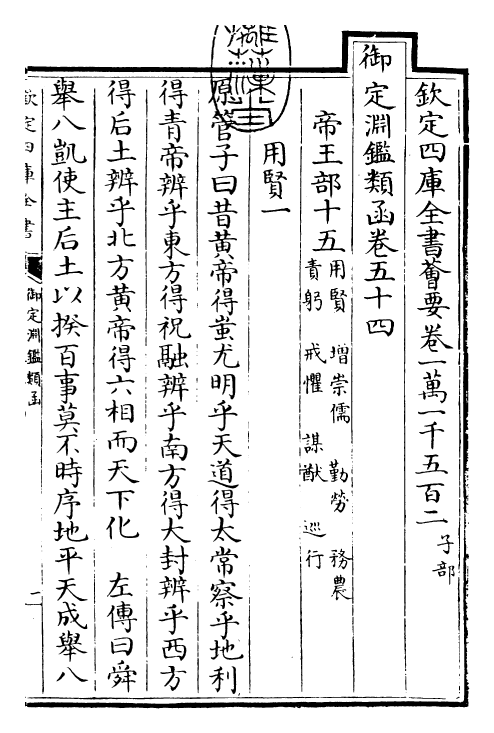 欽定四庫全書薈要卷一萬一千五百二 子部
御定淵鑑類函卷五十四
帝王部十五 用賢 增崇儒 勤勞 務農
責躬 戒懼 謀猷 巡行
用賢一
原管子曰昔黃帝得蚩尤明乎天道得太常察乎地利
得青帝辨乎東方得祝融辨乎南方得大封辨乎西方
得后土辨乎北方黃帝得六相而天下化 左傳曰舜
舉八凱使主后土以揆百事莫不時序地平天成舉八
欽定四庫全書
御定淵鑑類函